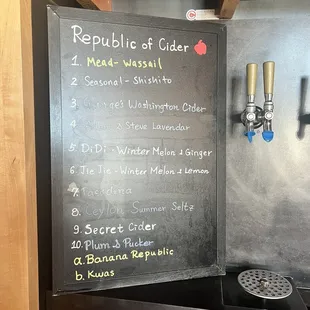 Republic of Cider
1. Mead - Wassail
2 Seasonal - Shishito
3 Washington Cider
4 Steve Lavendar
5 DiDi - Winter Melon & Ginger
6. Jie Jie - Winter Melon & Lemon
7.
8. Summer Seltz
9. Secret Cider
10. Plum & Pucker
a. Banana Republic
b. Kwas